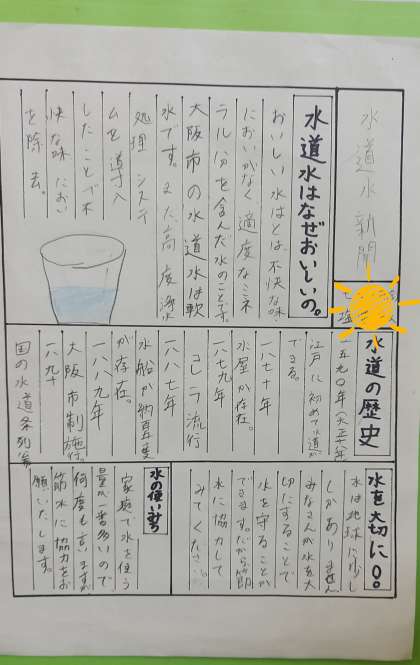 水道水新聞
水道水はなぜおいしいの。
おいしい水はとは、不快な味
においがなく適度なミネ
ラル分を含んだ水のことです。
大阪市の水道水は軟
水です。また、高度浄水
処理システ
ムを導入
したことで不
快な味におい
を除去。
水道の歴史
江戸に初めて水道が
できる。
一八七十年
水屋が存在。
一八七九年
コレラ流行
一八八七年
水船が納
が存在。
一八八九年
大阪市制施行。
一八九十
国の水道条列
水を大切に。
水は地球に少し
しかありません
みなさんが水を大
切にすることで
水を守ることが
できます。だから節
水に協力して
みてください。
水の使いみち
家庭で水を使う
量が一番多いので
何度も言いますが
節水に協力をお
願いたします。